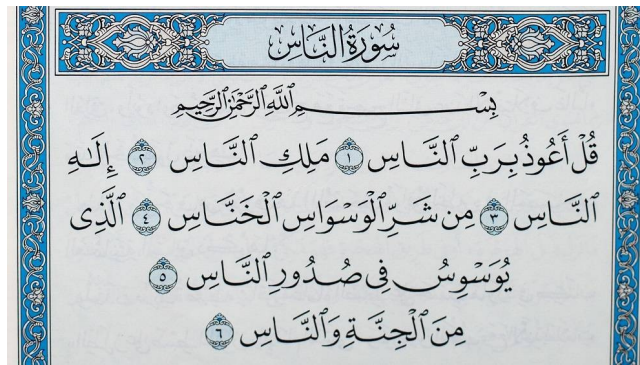 سُورَةُ النَّاسِ
بِسْمِ اللَّهِ الرَّحْمَٰنِ الرَّحِيمِ
قُلْ أَعُوذُ بِرَبِّ ٱلنَّاسِ ١ مَلِكِ ٱلنَّاسِ ٢ إِلَٰهِ
ٱلنَّاسِ ٣ مِن شَرِّ ٱلْوَسْوَاسِ ٱلْخَنَّاسِ ٤ ٱلَّذِى
يُوَسْوِسُ فِى صُدُورِ ٱلنَّاسِ ٥
مِنَ ٱلْجِنَّةِ وَٱلنَّاسِ ٦